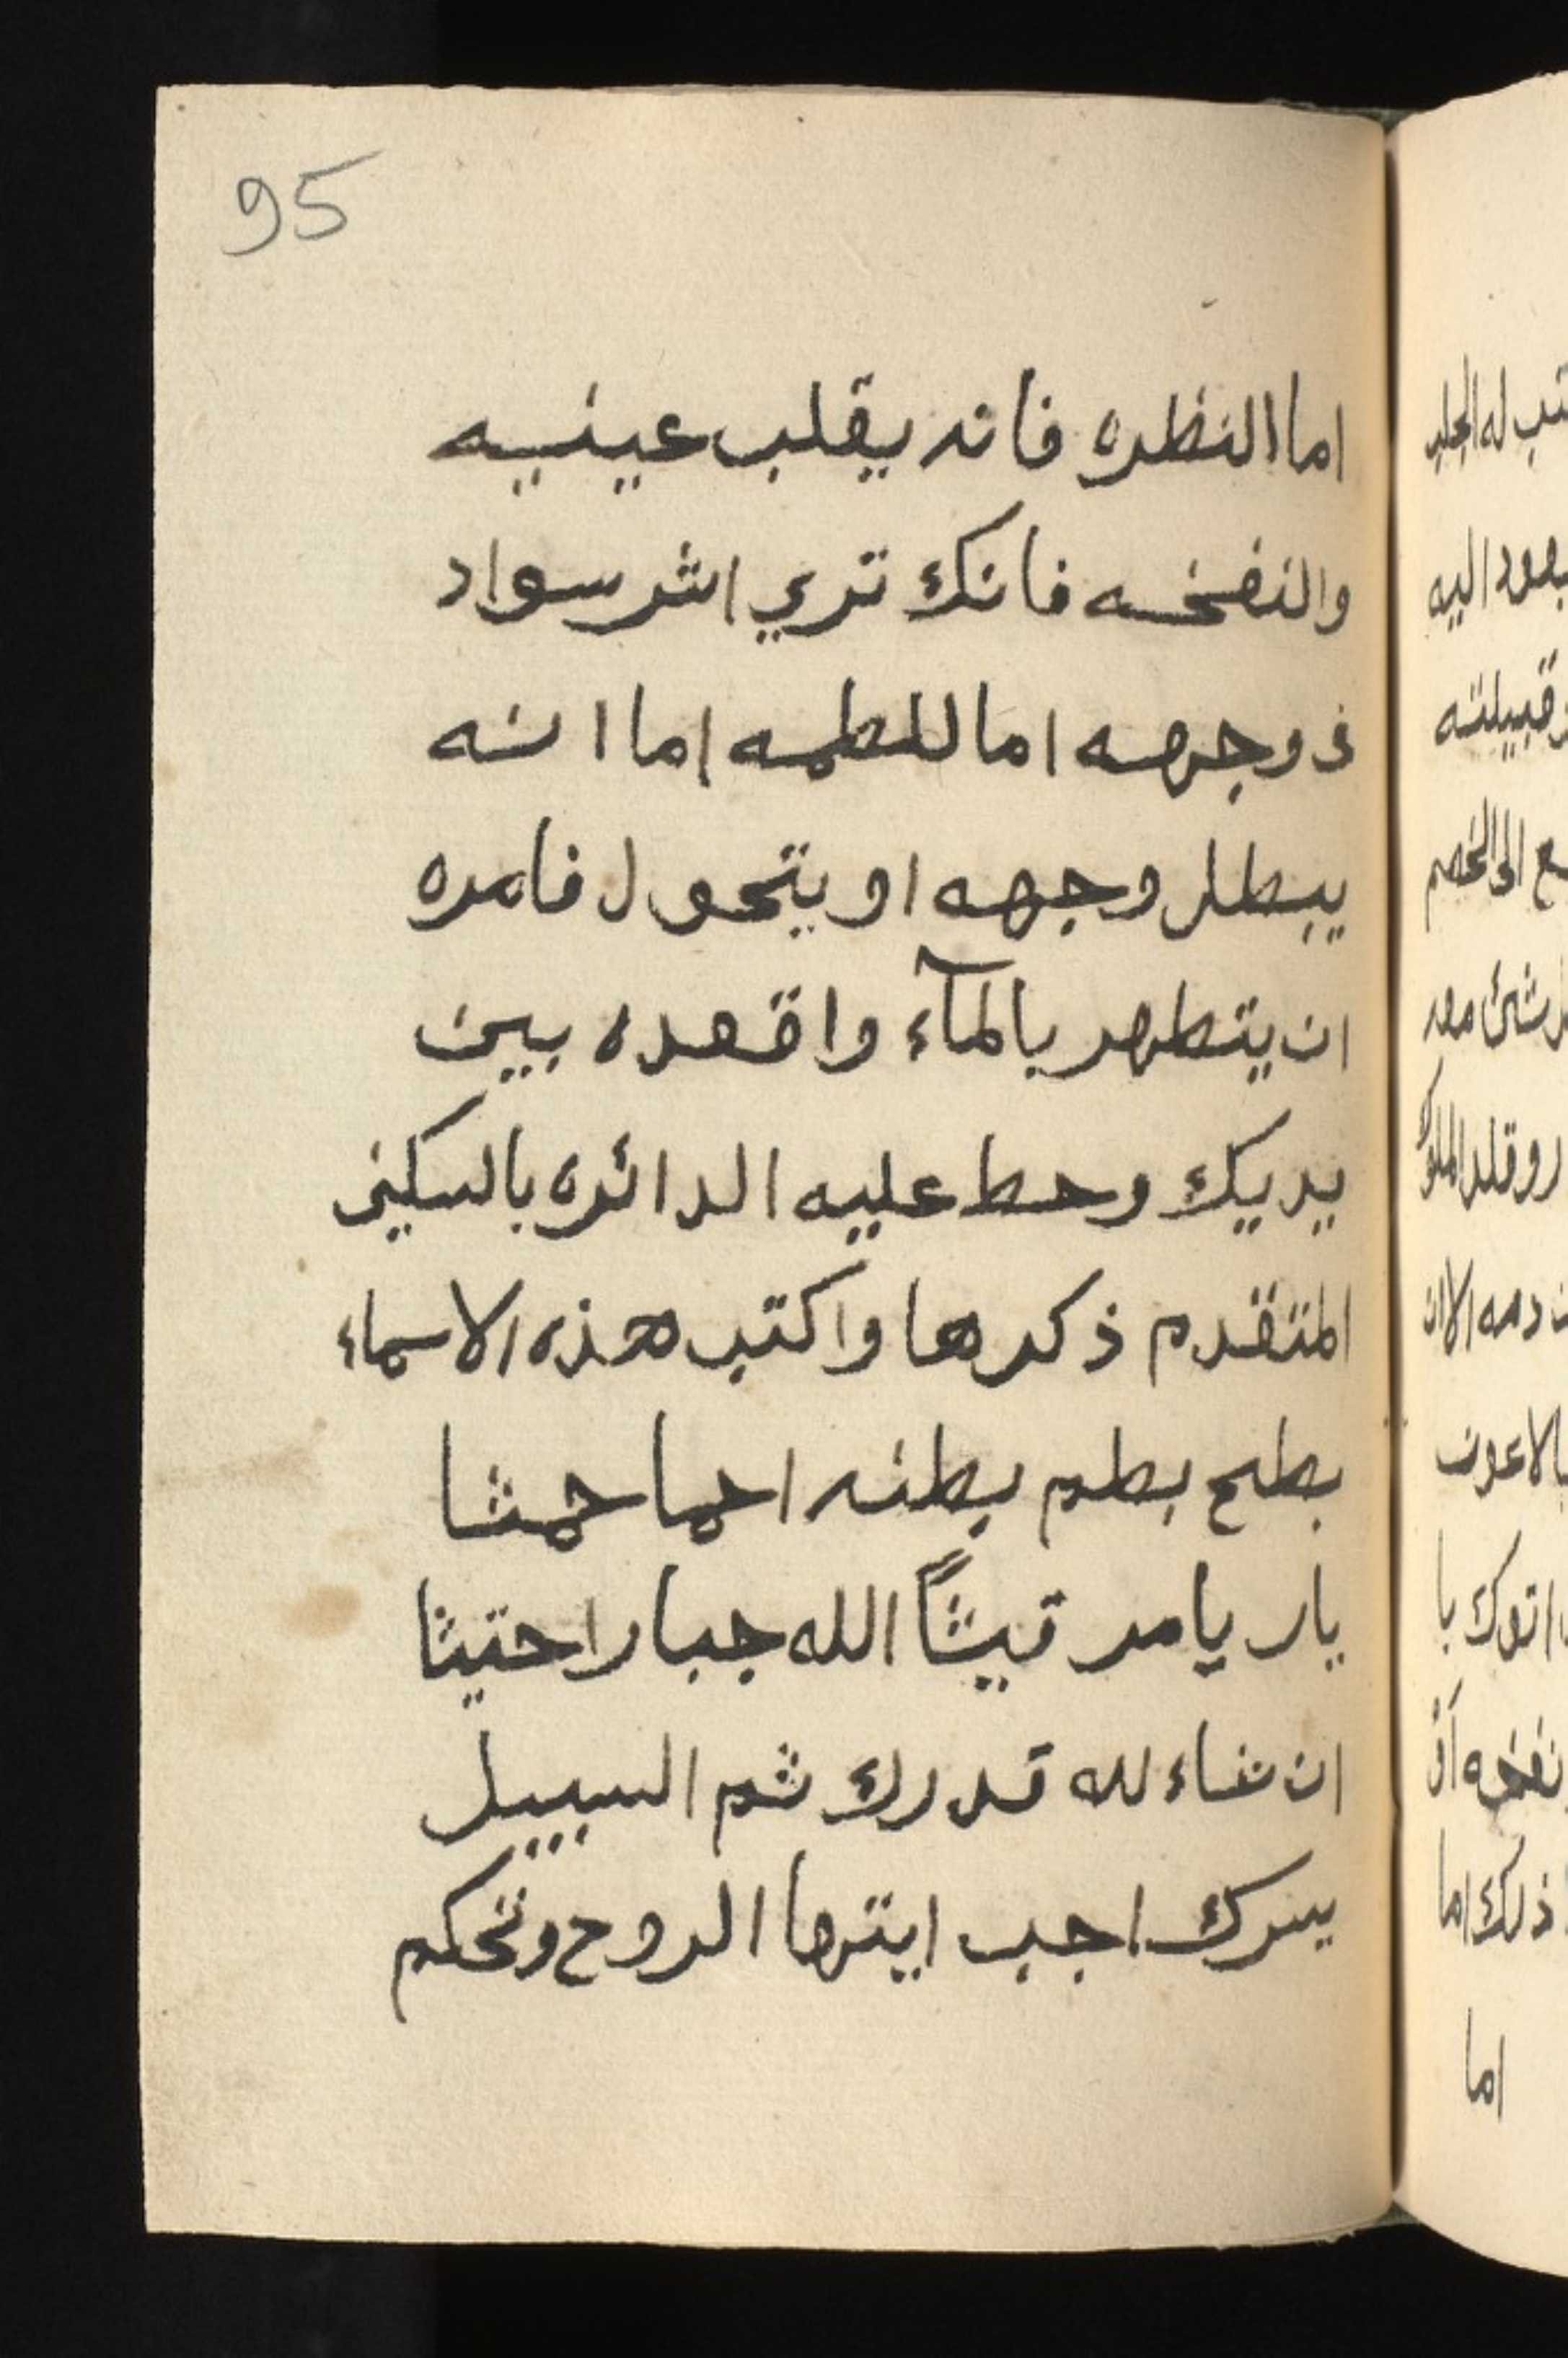 95
اما النظره فانه يقلب عينيه
والنفخه فانك تري اثر سواد
فى وجهه اما للطمه اما انه
يبطل وجهه او يتحول فامره
ان يتطهر بالمآء واقعده بين
يديك وحط عليه الدائره بالسكين
المتقدم ذكرها واكتب هذه الاسماء
بطح بطم بطنه احما حمثا
يار يامر تيثاً الله جبارا حتيثا
ان شاء لله قدرك ثم السبيل
يسرك اجب ايتها الروح وتحكم
اما